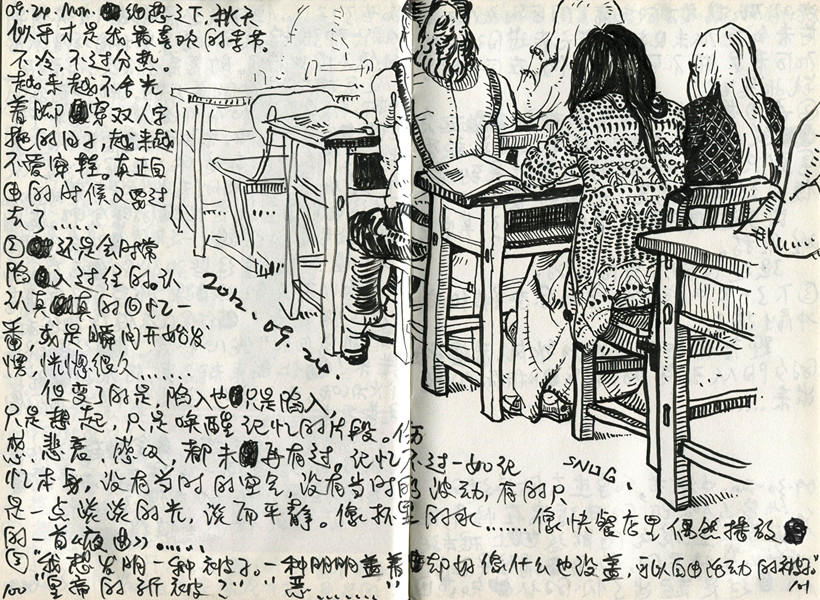 09.24. Mon. 细想之下,秋天
似乎才是我最喜欢的季节。
不冷,不过分热。
越来越不舍光
着脚穿双人字
拖的日子,越来越
不爱穿鞋。真正自
由的时候又要过
去了......
② 还是会时常
陷入过往的。认
认真真的回忆一
番,或是瞬间开始发
愣,恍惚很久......
但变了的是,陷入也只是陷入,
只是想起,只是唤醒记忆的片段。伤
愁,悲哀,感叹,都未再有过。记忆不过一如记
忆本身,没有当时的空气,没有当时的波动,有的只
是一点淡淡的光,淡而平静。像杯里的水......像快餐店里偶然播放
的一首《夜曲》......
③ "我想发明一种被子。一种明明盖着却好像什么也没盖,可以自由活动的被子。"
"皇帝的新被?" "恶......"
2012.09.24
SNOG.
100
101